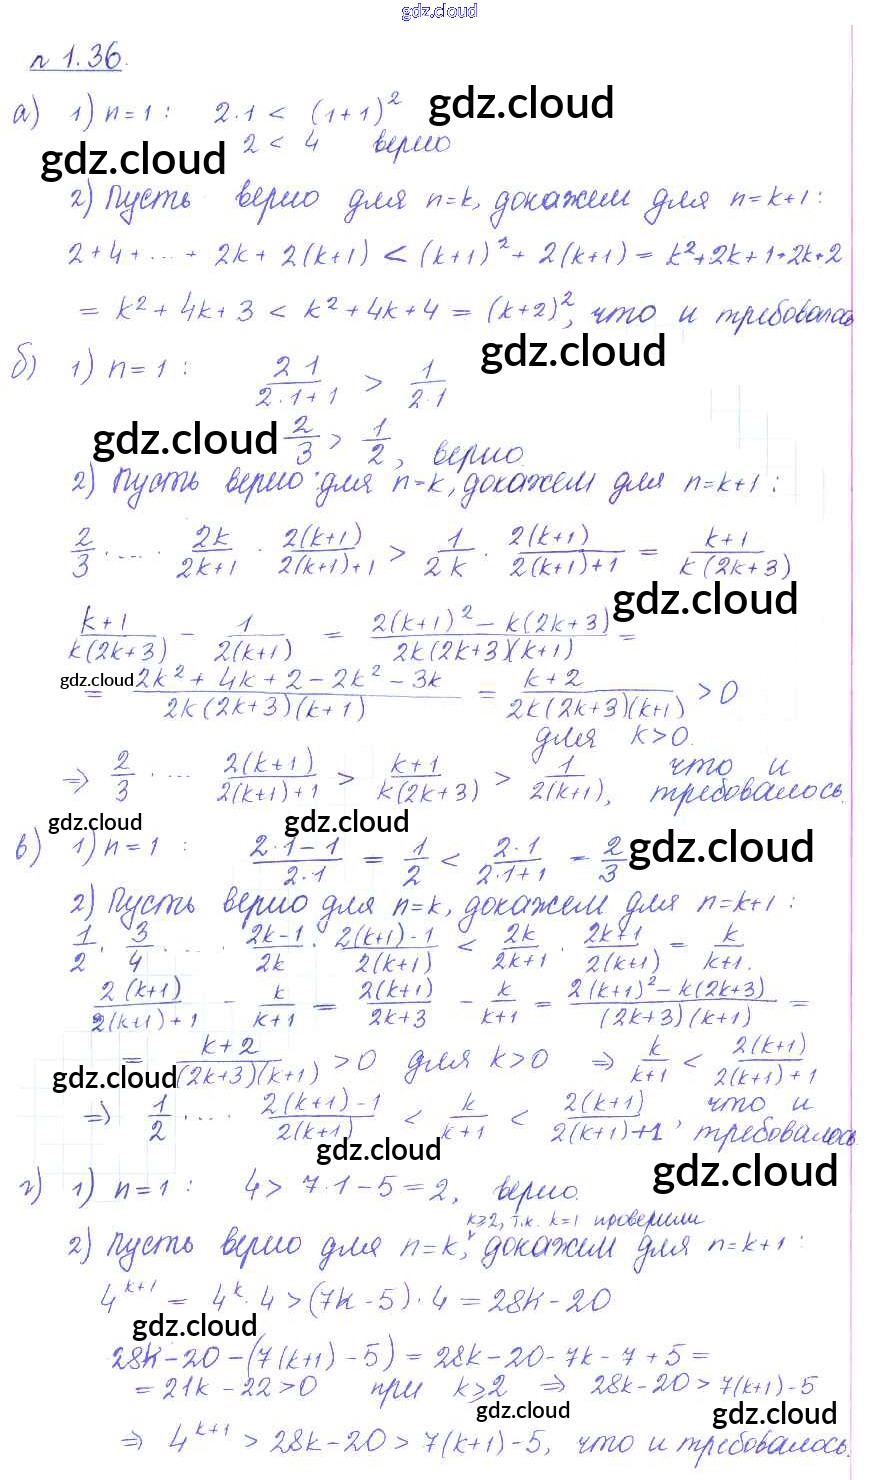 gdz.cloud
n 1.36.
а) 1) n=1: 2·1 < (1+1)² gdz.cloud
gdz.cloud 2 < 4 верно
2) Пусть верно для n=k, докажем для n=k+1:
2+4+...+2k+2(k+1) < (k+1)²+2(k+1) = k²+2k+1+2k+2
= k²+4k+3 < k²+4k+4 = (k+2)², что и требовалось
gdz.cloud
б) 1) n=1: 2·1/(2·1+1) > 1/(2·1)
gdz.cloud 2/3 > 1/2, верно.
2) Пусть верно для n=k, докажем для n=k+1:
2/3 · ... · 2k/(2k+1) · 2(k+1)/(2(k+1)+1) > 1/(2k) · 2(k+1)/(2(k+1)+1) = (k+1)/(k(2k+3))
gdz.cloud
(k+1)/(k(2k+3)) - 1/(2(k+1)) = (2(k+1)²-k(2k+3))/(2k(2k+3)(k+1)) =
gdz.cloud = (2k²+4k+2-2k²-3k)/(2k(2k+3)(k+1)) = (k+2)/(2k(2k+3)(k+1)) > 0
для k>0.
⇒ 2/3 · ... 2(k+1)/(2(k+1)+1) > (k+1)/(k(2k+3)) > 1/(2(k+1)), что и требовалось.
gdz.cloud gdz.cloud
в) 1) n=1: (2·1-1)/(2·1) = 1/2 < 2·1/(2·1+1) = 2/3 gdz.cloud
2) Пусть верно для n=k, докажем для n=k+1:
1/2 · 3/4 · ... (2k-1)/(2k) · (2(k+1)-1)/(2(k+1)) < 2k/(2k+1) · (2k+1)/(2(k+1)) = k/(k+1).
2(k+1)/(2(k+1)+1) - k/(k+1) = 2(k+1)/(2k+3) - k/(k+1) = (2(k+1)²-k(2k+3))/((2k+3)(k+1)) =
gdz.cloud = (k+2)/((2k+3)(k+1)) > 0 для k>0 ⇒ k/(k+1) < 2(k+1)/(2(k+1)+1)
⇒ 1/2 · ... (2(k+1)-1)/(2(k+1)) < k/(k+1) < 2(k+1)/(2(k+1)+1), что и требовалось.
gdz.cloud gdz.cloud
г) 1) n=1: 4 > 7·1-5=2, верно.
k⩾2, т.к. k=1 проверили
2) Пусть верно для n=k, докажем для n=k+1:
4^(k+1) = 4^k·4 > (7k-5)·4 = 28k-20
gdz.cloud
28k-20-(7(k+1)-5) = 28k-20-7k-7+5 =
= 21k-22>0 при k⩾2 ⇒ 28k-20>7(k+1)-5
gdz.cloud gdz.cloud
⇒ 4^(k+1) > 28k-20 > 7(k+1)-5, что и требовалось.